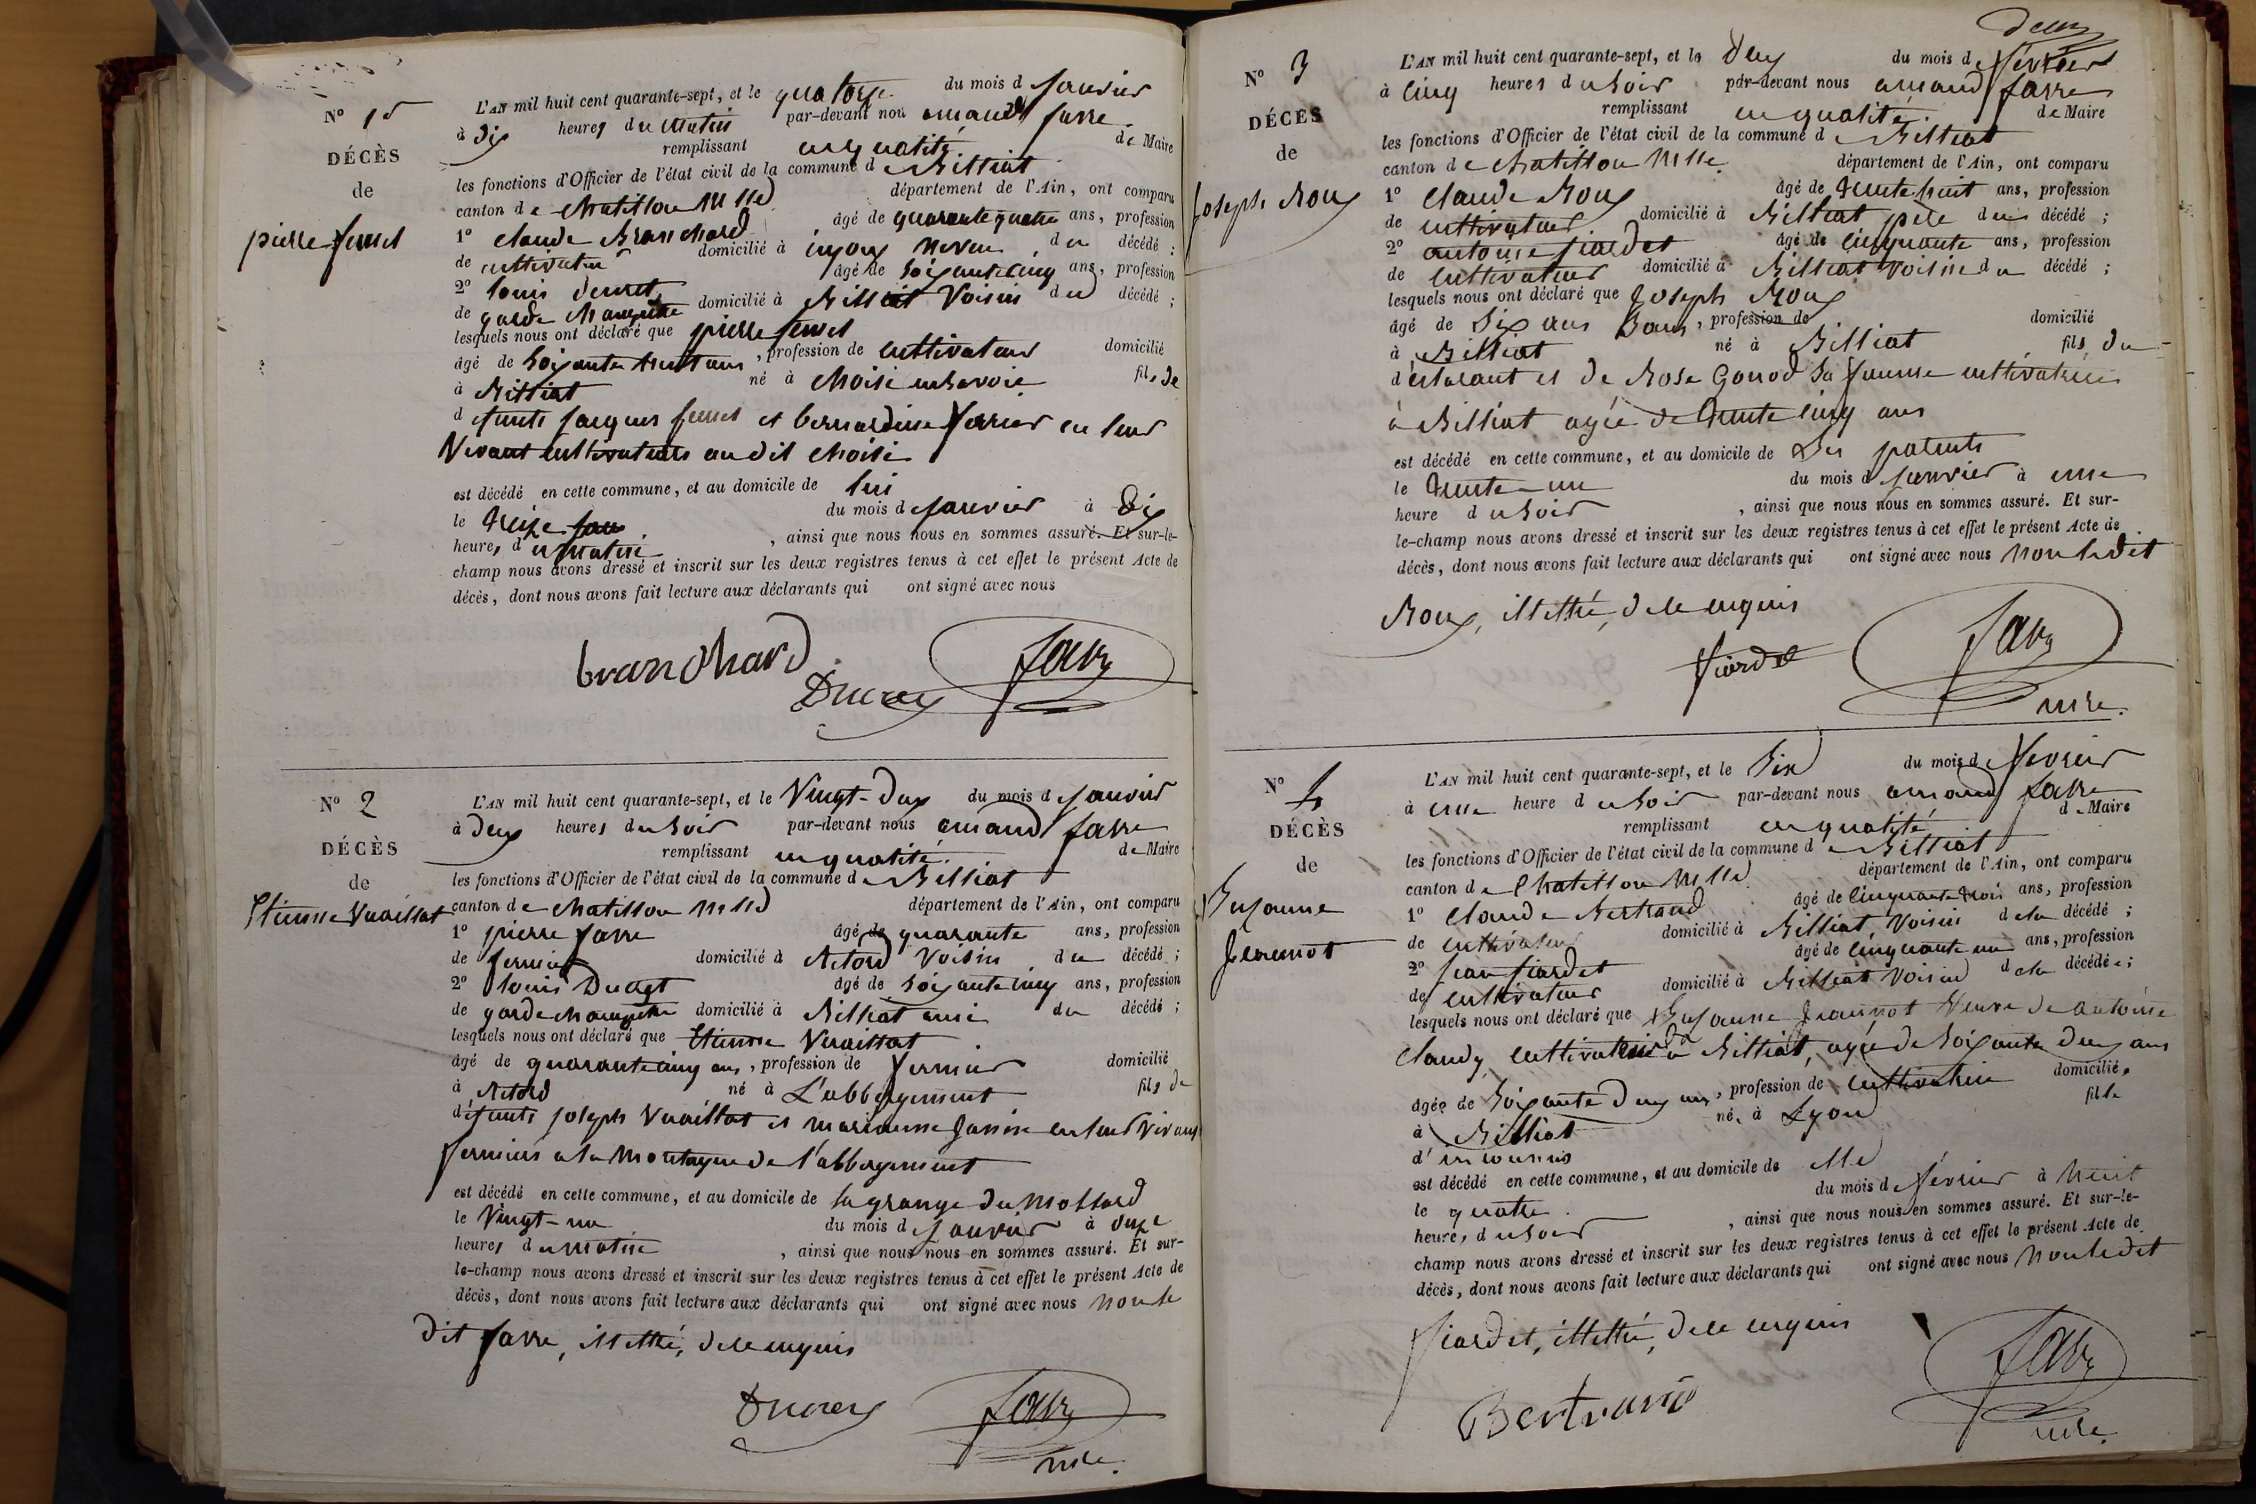 N° 1
DÉCÈS
de
pierre
L'AN mil huit cent quarante-sept, et le quatorze du mois d janvier
à dix heures du matin par-devant nou amand favre
remplissant en qualité de Maire
les fonctions d'Officier de l'état civil de la commune de Billiat
canton de chatillon département de l'Ain, ont comparu
1° claude Branchard âgé de quarante quatre ans, profession
de cultivateur domicilié à injoux neveu du décédé ;
2° louis âgé de soixante cinq ans, profession
de garde champêtre domicilié à Billiat voisin du décédé ;
lesquels nous ont déclaré que pierre
âgé de soixante ans, profession de cultivateur domicilié
à Billiat né à choisi en Savoie fils de
défunts jacques et bernardine en leur
vivant cultivateurs au dit choisi
est décédé en cette commune, et au domicile de lui
le treize du mois de janvier à dix
heures du matin, ainsi que nous nous en sommes assuré. Et sur-le-
champ nous avons dressé et inscrit sur les deux registres tenus à cet effet le présent Acte de
décès, dont nous avons fait lecture aux déclarants qui ont signé avec nous
branchard
Ducrey favre
N° 2
DÉCÈS
de
Etienne Vuaillat
L'AN mil huit cent quarante-sept, et le vingt-deux du mois de janvier
à deux heures du soir par-devant nous amand favre
remplissant en qualité de Maire
les fonctions d'Officier de l'état civil de la commune de Billiat
canton de chatillon département de l'Ain, ont comparu
1° pierre favre âgé de quarante ans, profession
de fermier domicilié à Retord voisin du décédé ;
2° louis âgé de soixante cinq ans, profession
de garde champêtre domicilié à Billiat ami du décédé ;
lesquels nous ont déclaré que Etienne Vuaillat
âgé de quarante cinq ans, profession de fermier domicilié
à Retord né à L'abbergement fils de
défunts joseph Vuaillat et marianne en leur vivant
fermiers a la montagne de l'abbergement
est décédé en cette commune, et au domicile de la grange du
le vingt-un du mois de janvier à onze
heures du matin, ainsi que nous nous en sommes assuré. Et sur-
le-champ nous avons dressé et inscrit sur les deux registres tenus à cet effet le présent Acte de
décès, dont nous avons fait lecture aux déclarants qui ont signé avec nous non le
dit favre, illettré, de ce enquis
Ducrey favre
mre.
deux
N° 3
DÉCÈS
de
Joseph Roux
L'AN mil huit cent quarante-sept, et le deux du mois de février
à cinq heures du soir par-devant nous amand favre
remplissant en qualité de Maire
les fonctions d'Officier de l'état civil de la commune de Billiat
canton de chatillon département de l'Ain, ont comparu
1° claude Roux âgé de trente huit ans, profession
de cultivateur domicilié à Billiat père du décédé ;
2° antoine fiardet âgé de cinquante ans, profession
de cultivateur domicilié à Billiat voisin du décédé ;
lesquels nous ont déclaré que Joseph Roux
âgé de six ans, profession de domicilié
à Billiat né à Billiat fils du
déclarant et de Rose Gonod sa femme cultivatrice
à Billiat agée de trente cinq ans
est décédé en cette commune, et au domicile de ses parents
le trente-un du mois de janvier à une
heure du soir, ainsi que nous nous en sommes assuré. Et sur-
le-champ nous avons dressé et inscrit sur les deux registres tenus à cet effet le présent Acte de
décès, dont nous avons fait lecture aux déclarants qui ont signé avec nous non le dit
Roux, illettré, de ce enquis
fiardet favre
mre.
N° 4
DÉCÈS
de
Suzanne
Jeannot
L'AN mil huit cent quarante-sept, et le six du mois de fevrier
à une heure du soir par-devant nous amand favre
remplissant en qualité de Maire
les fonctions d'Officier de l'état civil de la commune de Billiat
canton de Chatillon département de l'Ain, ont comparu
1° Claude Bertrand âgé de cinquante trois ans, profession
de cultivateur domicilié à Billiat, voisin de la décédé ;
2° jean fiardet âgé de cinquante un ans, profession
de cultivateur domicilié à Billiat voisin de la décédée ;
lesquels nous ont déclaré que Suzanne Jeannot veuve de antoine
claudy, cultivateur à Billiat, agée de soixante deux ans
âgée de soixante deux ans, profession de cultivatrice domiciliée
à Billiat née à Lyon fille
d'inconnus
est décédé en cette commune, et au domicile de elle
le quatre du mois de février à huit
heures du soir, ainsi que nous nous en sommes assuré. Et sur-le-
champ nous avons dressé et inscrit sur les deux registres tenus à cet effet le présent Acte de
décès, dont nous avons fait lecture aux déclarants qui ont signé avec nous non le dit
fiardet, illettré, de ce enquis
Bertrand favre
mre.